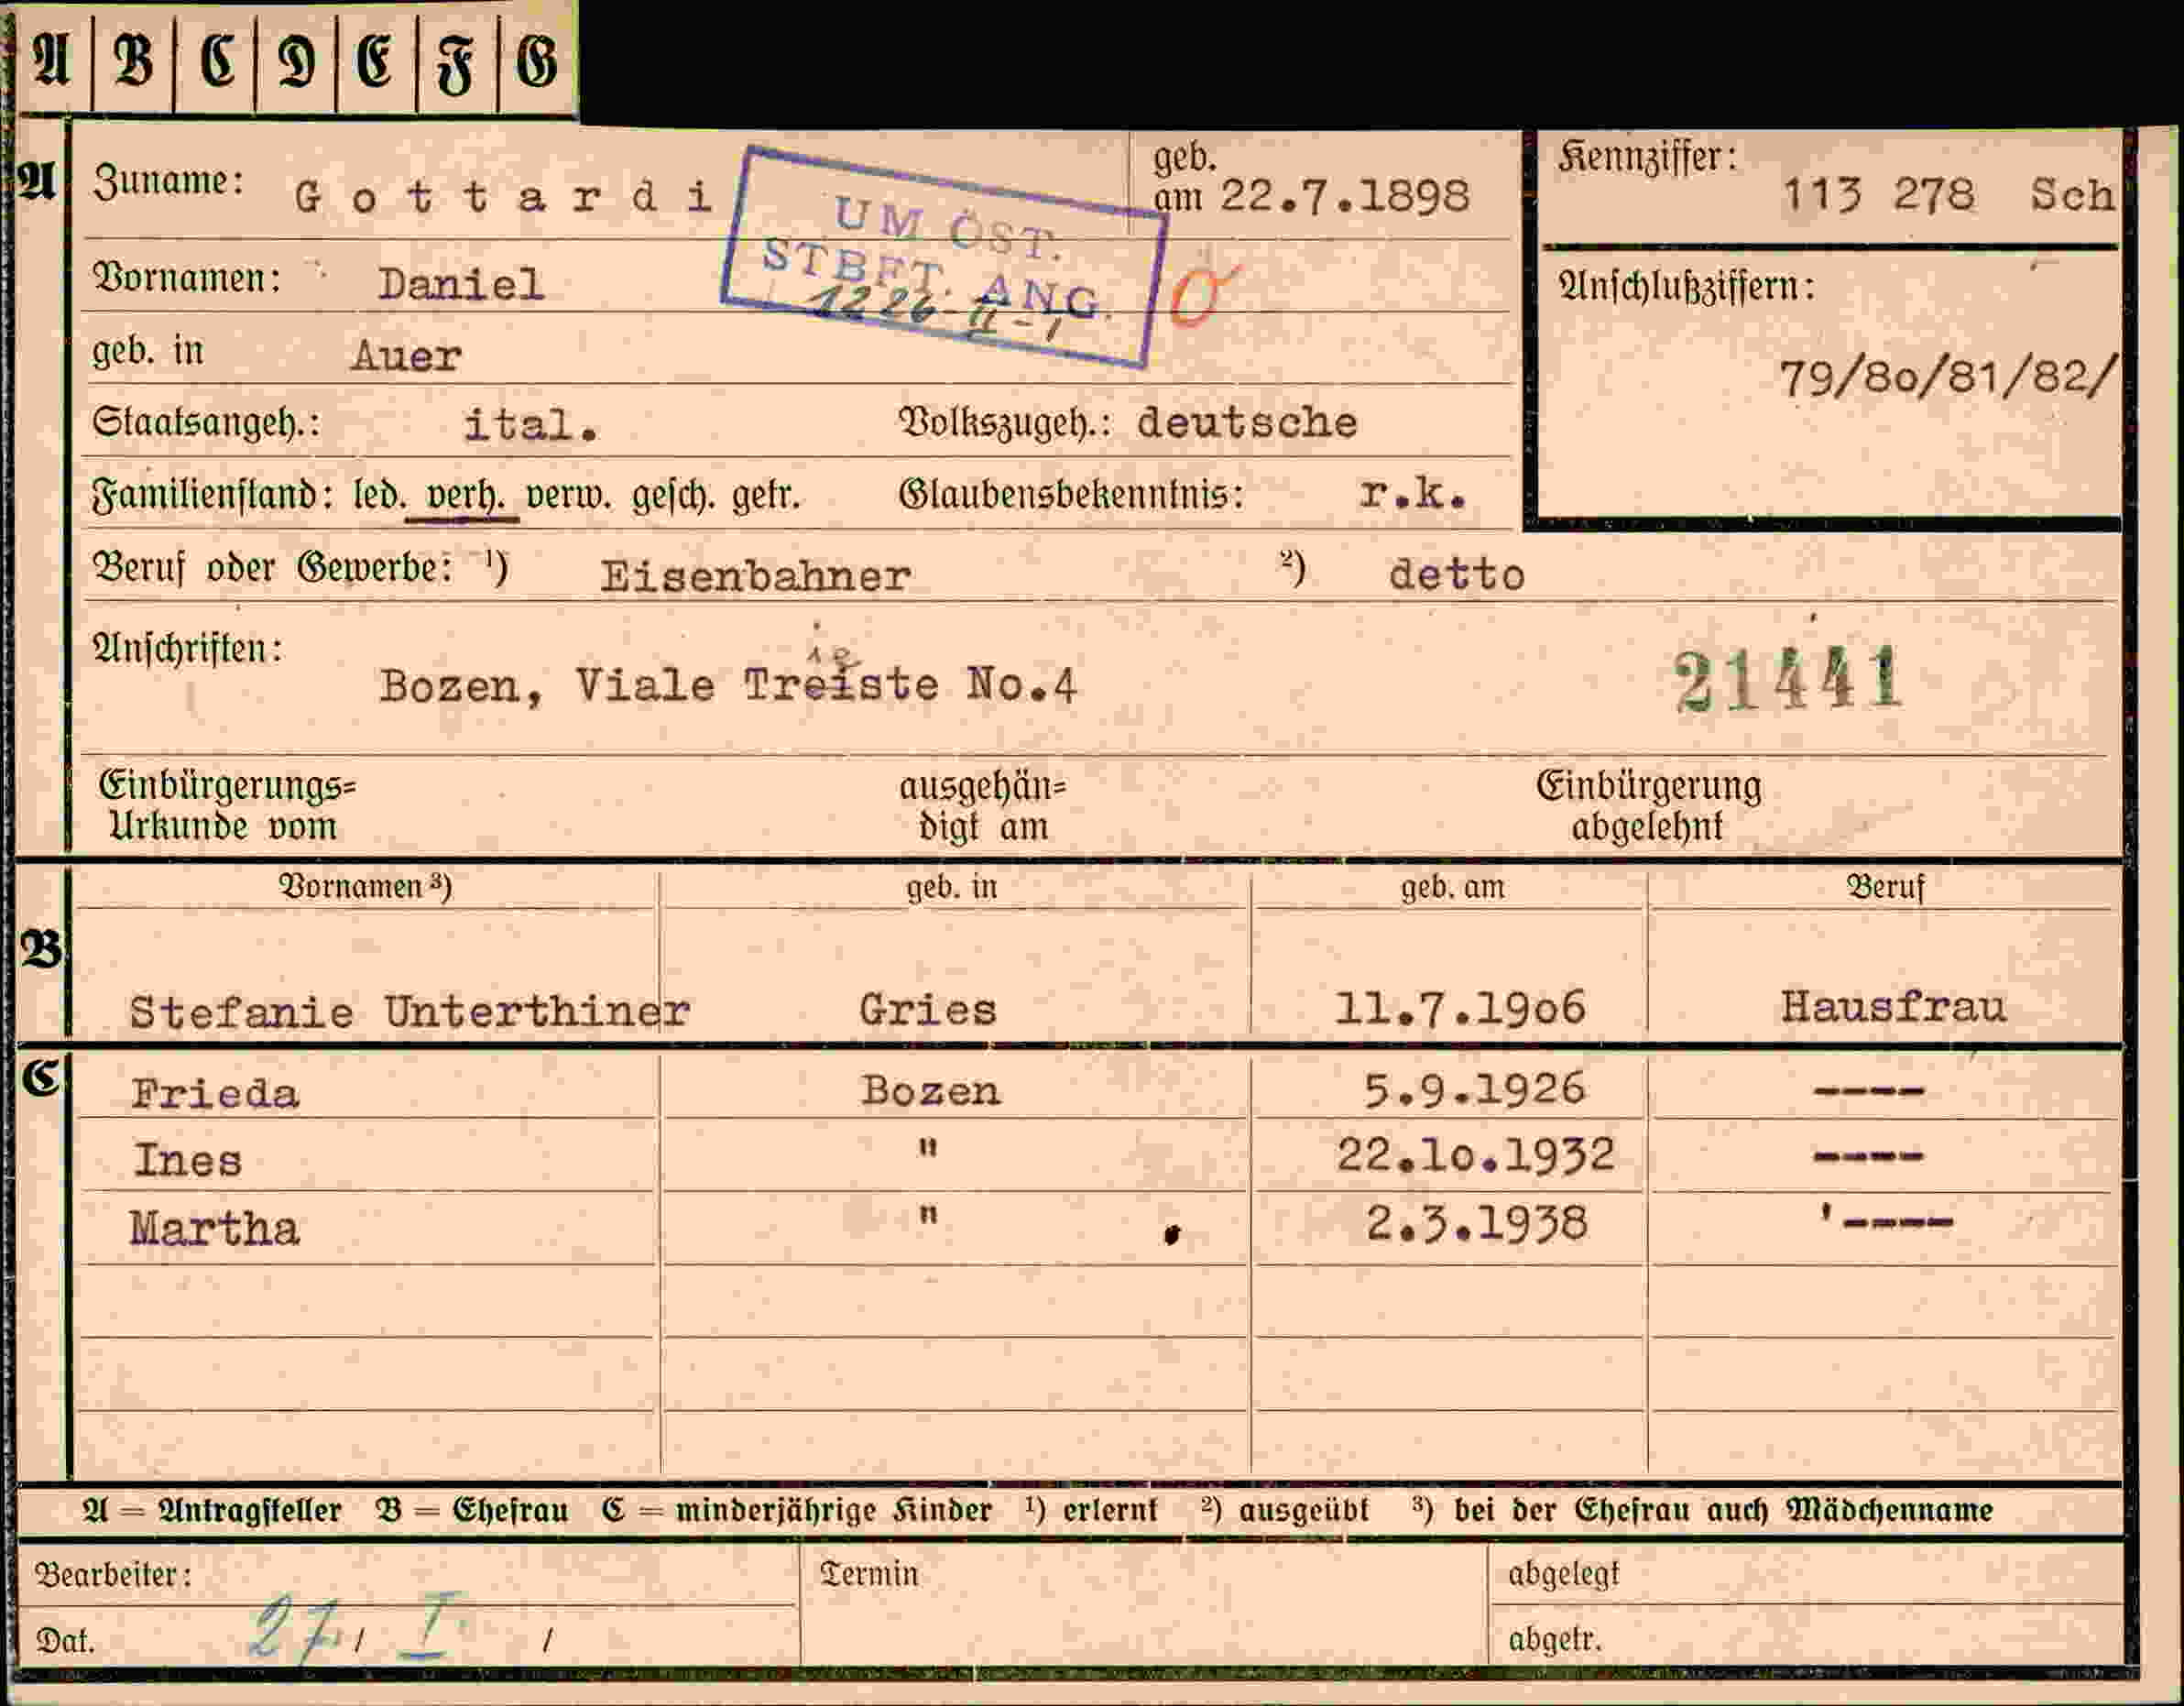 A B C D E F G
A Zuname: Gottardi geb. am 22.7.1898 Kennziffer: 113 278 Sch
UM ÖST.
STBFT. ANG.
1226-II-1
Vornamen: Daniel
geb. in Auer
Anschlußziffern:
79/80/81/82/
Staatsangeh.: ital. Volkszugeh.: deutsche
Familienstand: led. verh. verw. gesch. getr. Glaubensbekenntnis: r.k.
Beruf oder Gewerbe: 1) Eisenbahner 2) detto
Anschriften:
ie
Bozen, Viale Treiste No.4 21441
Einbürgerungs= ausgehän= Einbürgerung
Urkunde vom digt am abgelehnt
Vornamen 3) geb. in geb. am Beruf
B
Stefanie Unterthiner Gries 11.7.1906 Hausfrau
C Frieda Bozen 5.9.1926 ----
Ines " 22.10.1932 ----
Martha " 2.3.1938 '----
A = Antragsteller B = Ehefrau C = minderjährige Kinder 1) erlernt 2) ausgeübt 3) bei der Ehefrau auch Mädchenname
Bearbeiter: Termin abgelegt
Dat. 27 / I / abgetr.